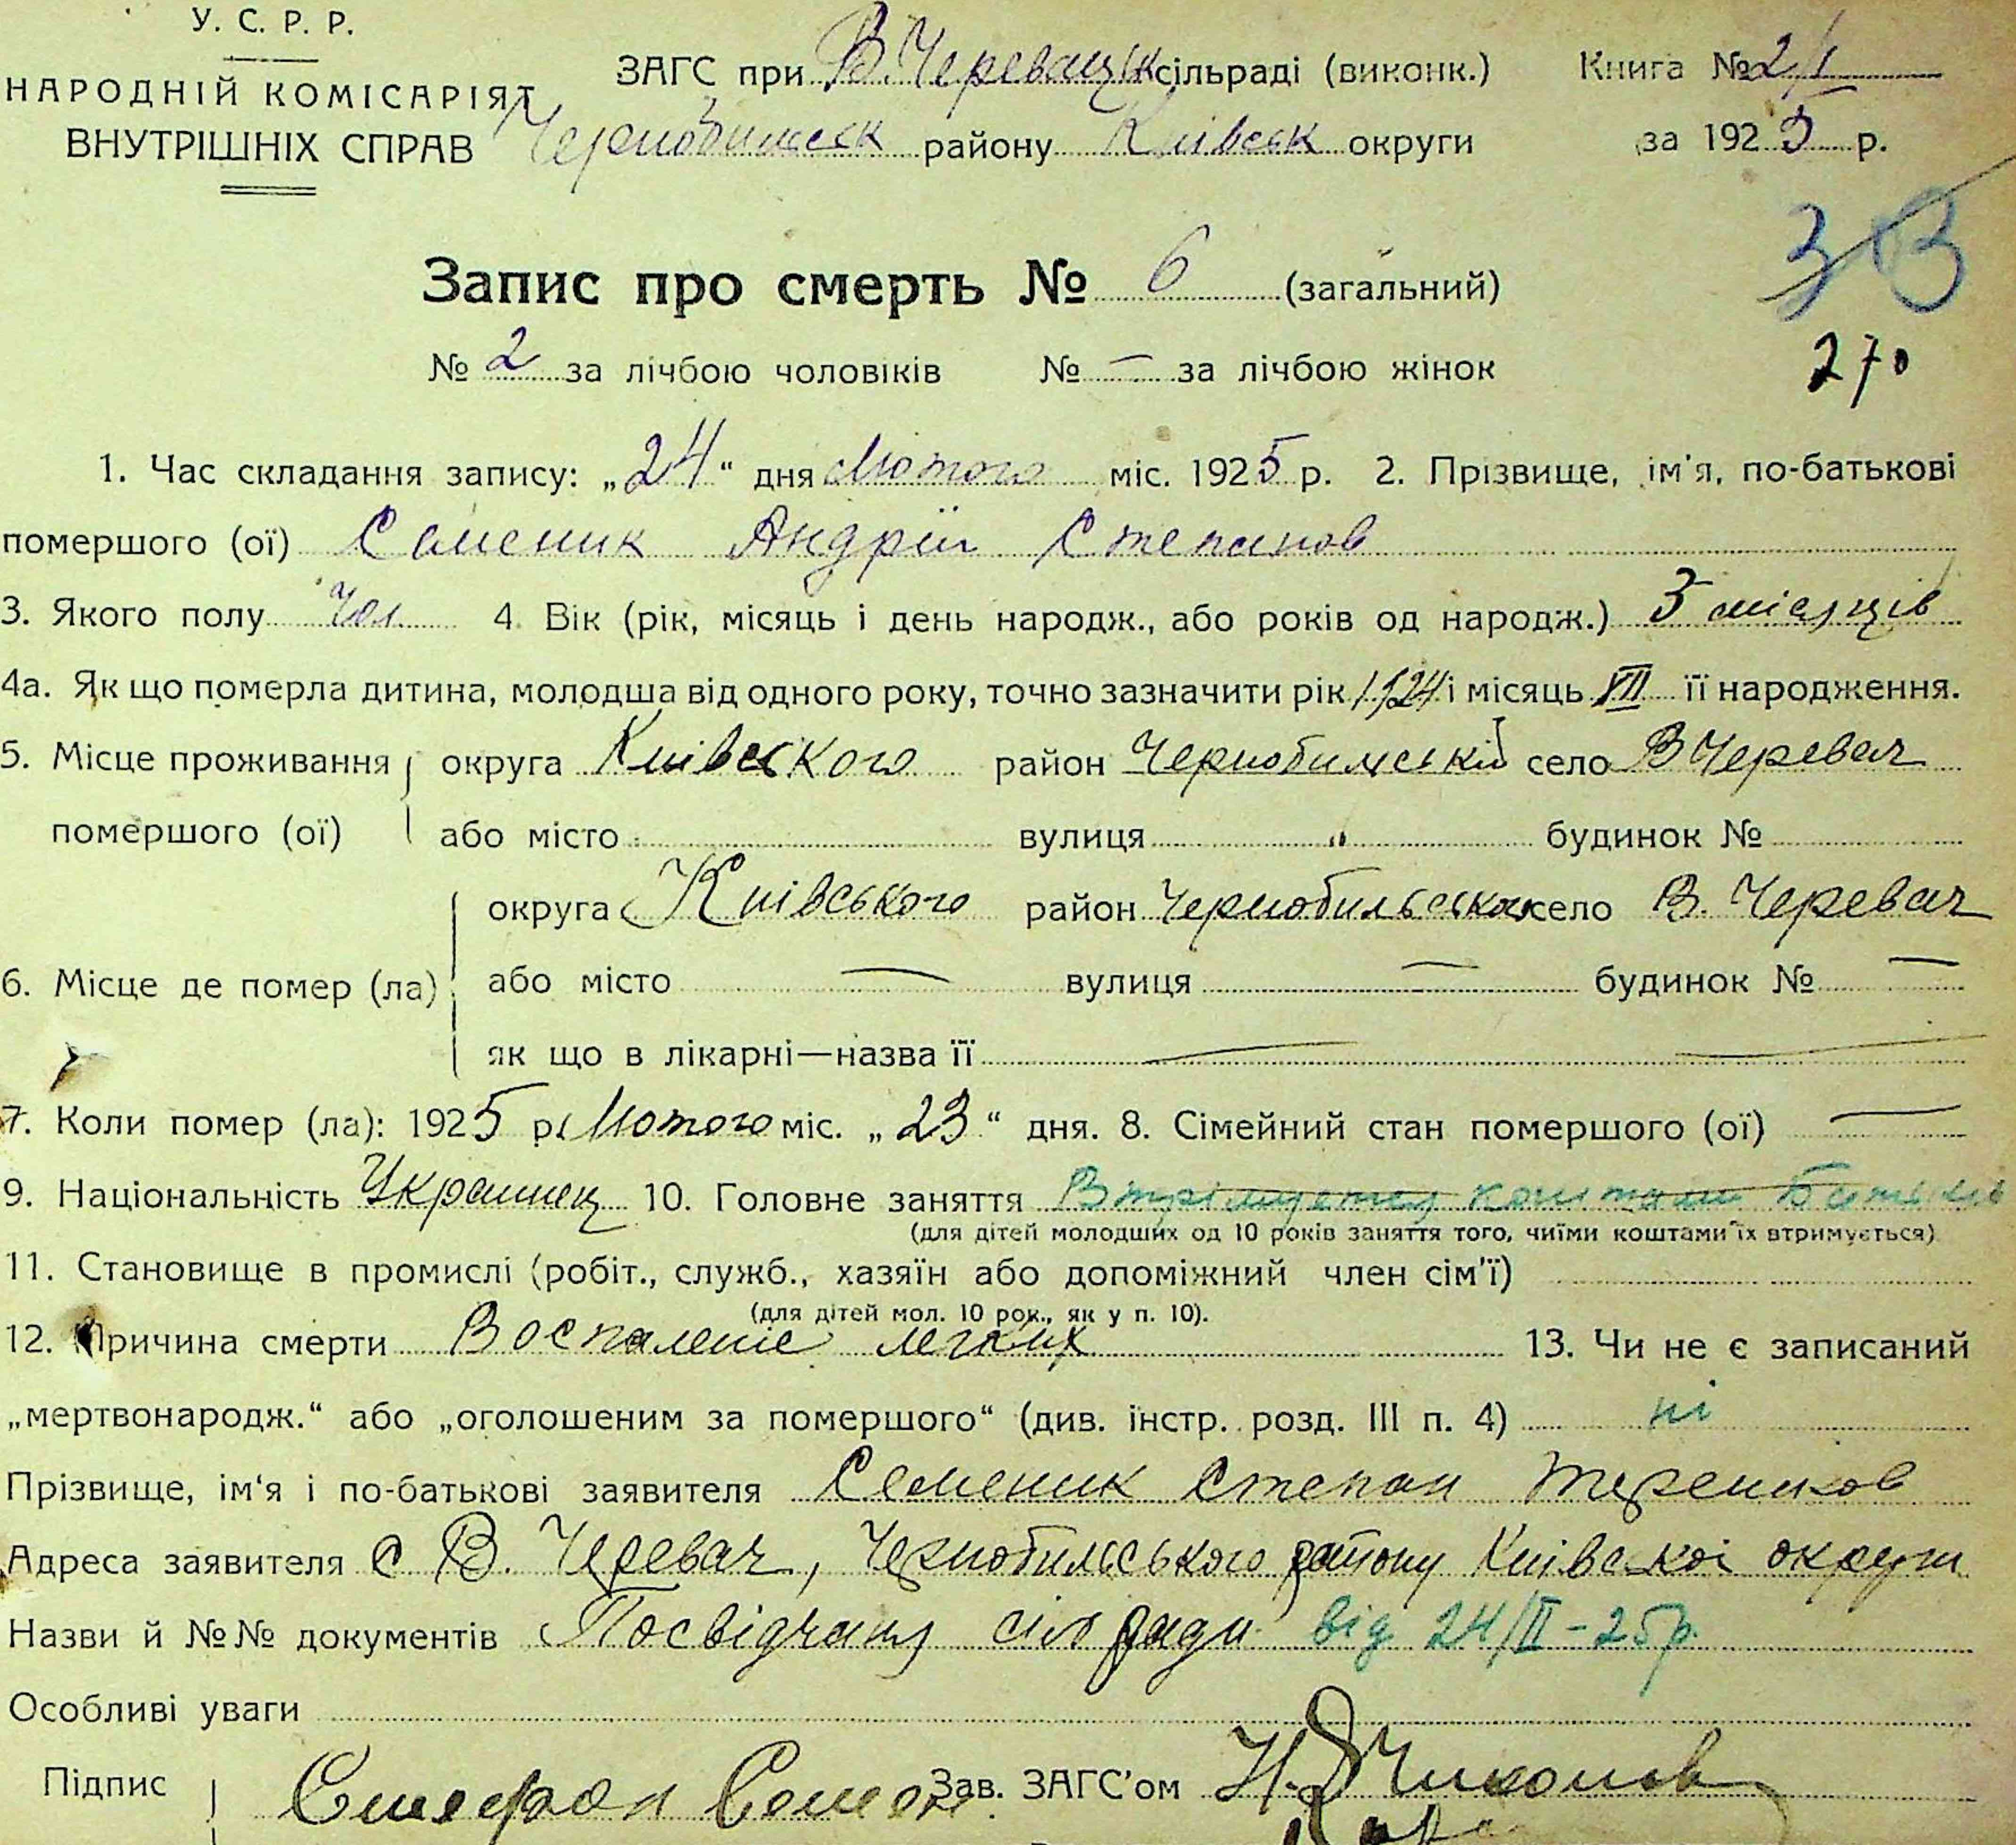 У. С. Р. Р.
НАРОДНІЙ КОМІСАРІЯТ
ВНУТРІШНІХ СПРАВ
ЗАГС при В. Черевацьк сільраді (виконк.) Книга № 2/1
Чернобильськ району Київськ округи за 1925 р.
Запис про смерть № 6 (загальний)
270
№ 2 за лічбою чоловіків № — за лічбою жінок
1. Час складання запису: „24“ дня Лютого міс. 1925 р. 2. Прізвище, ім'я, по-батькові
помершого (ої) Семеник Андрій Степанов
3. Якого полу Чол. 4. Вік (рік, місяць і день народж., або років од народж.) 5 місяців
4а. Як що померла дитина, молодша від одного року, точно зазначити рік 1924 і місяць VII її народження.
5. Місце проживання округа Київського район Чернобильській село В Черевач
помершого (ої) або місто вулиця " будинок №
округа Київського район Чернобильського село В. Черевач
6. Місце де помер (ла) або місто — вулиця — будинок № —
як що в лікарні—назва її — —
7. Коли помер (ла): 1925 р. Лютого міс. „23“ дня. 8. Сімейний стан помершого (ої) —
9. Національність Українец 10. Головне заняття Втрімуется коштами Батьків
(для дітей молодших од 10 років заняття того, чиїми коштами їх втримується)
11. Становище в промислі (робіт., служб., хазяїн або допоміжний член сім'ї)
(для дітей мол. 10 рок., як у п. 10).
12. Причина смерти Воспаленіе легких 13. Чи не є записаний
„мертвонародж.“ або „оголошеним за помершого“ (див. інстр. розд. III п. 4) ні
Прізвище, ім'я і по-батькові заявителя Семеник Степан
Адреса заявителя С В. Черевач, Чернобильського району Київської округи
Назви й №№ документів Посвідчання сілради від 24/II-25р.
Особливі уваги
Підпис Стефан Семен Зав. ЗАГС'ом